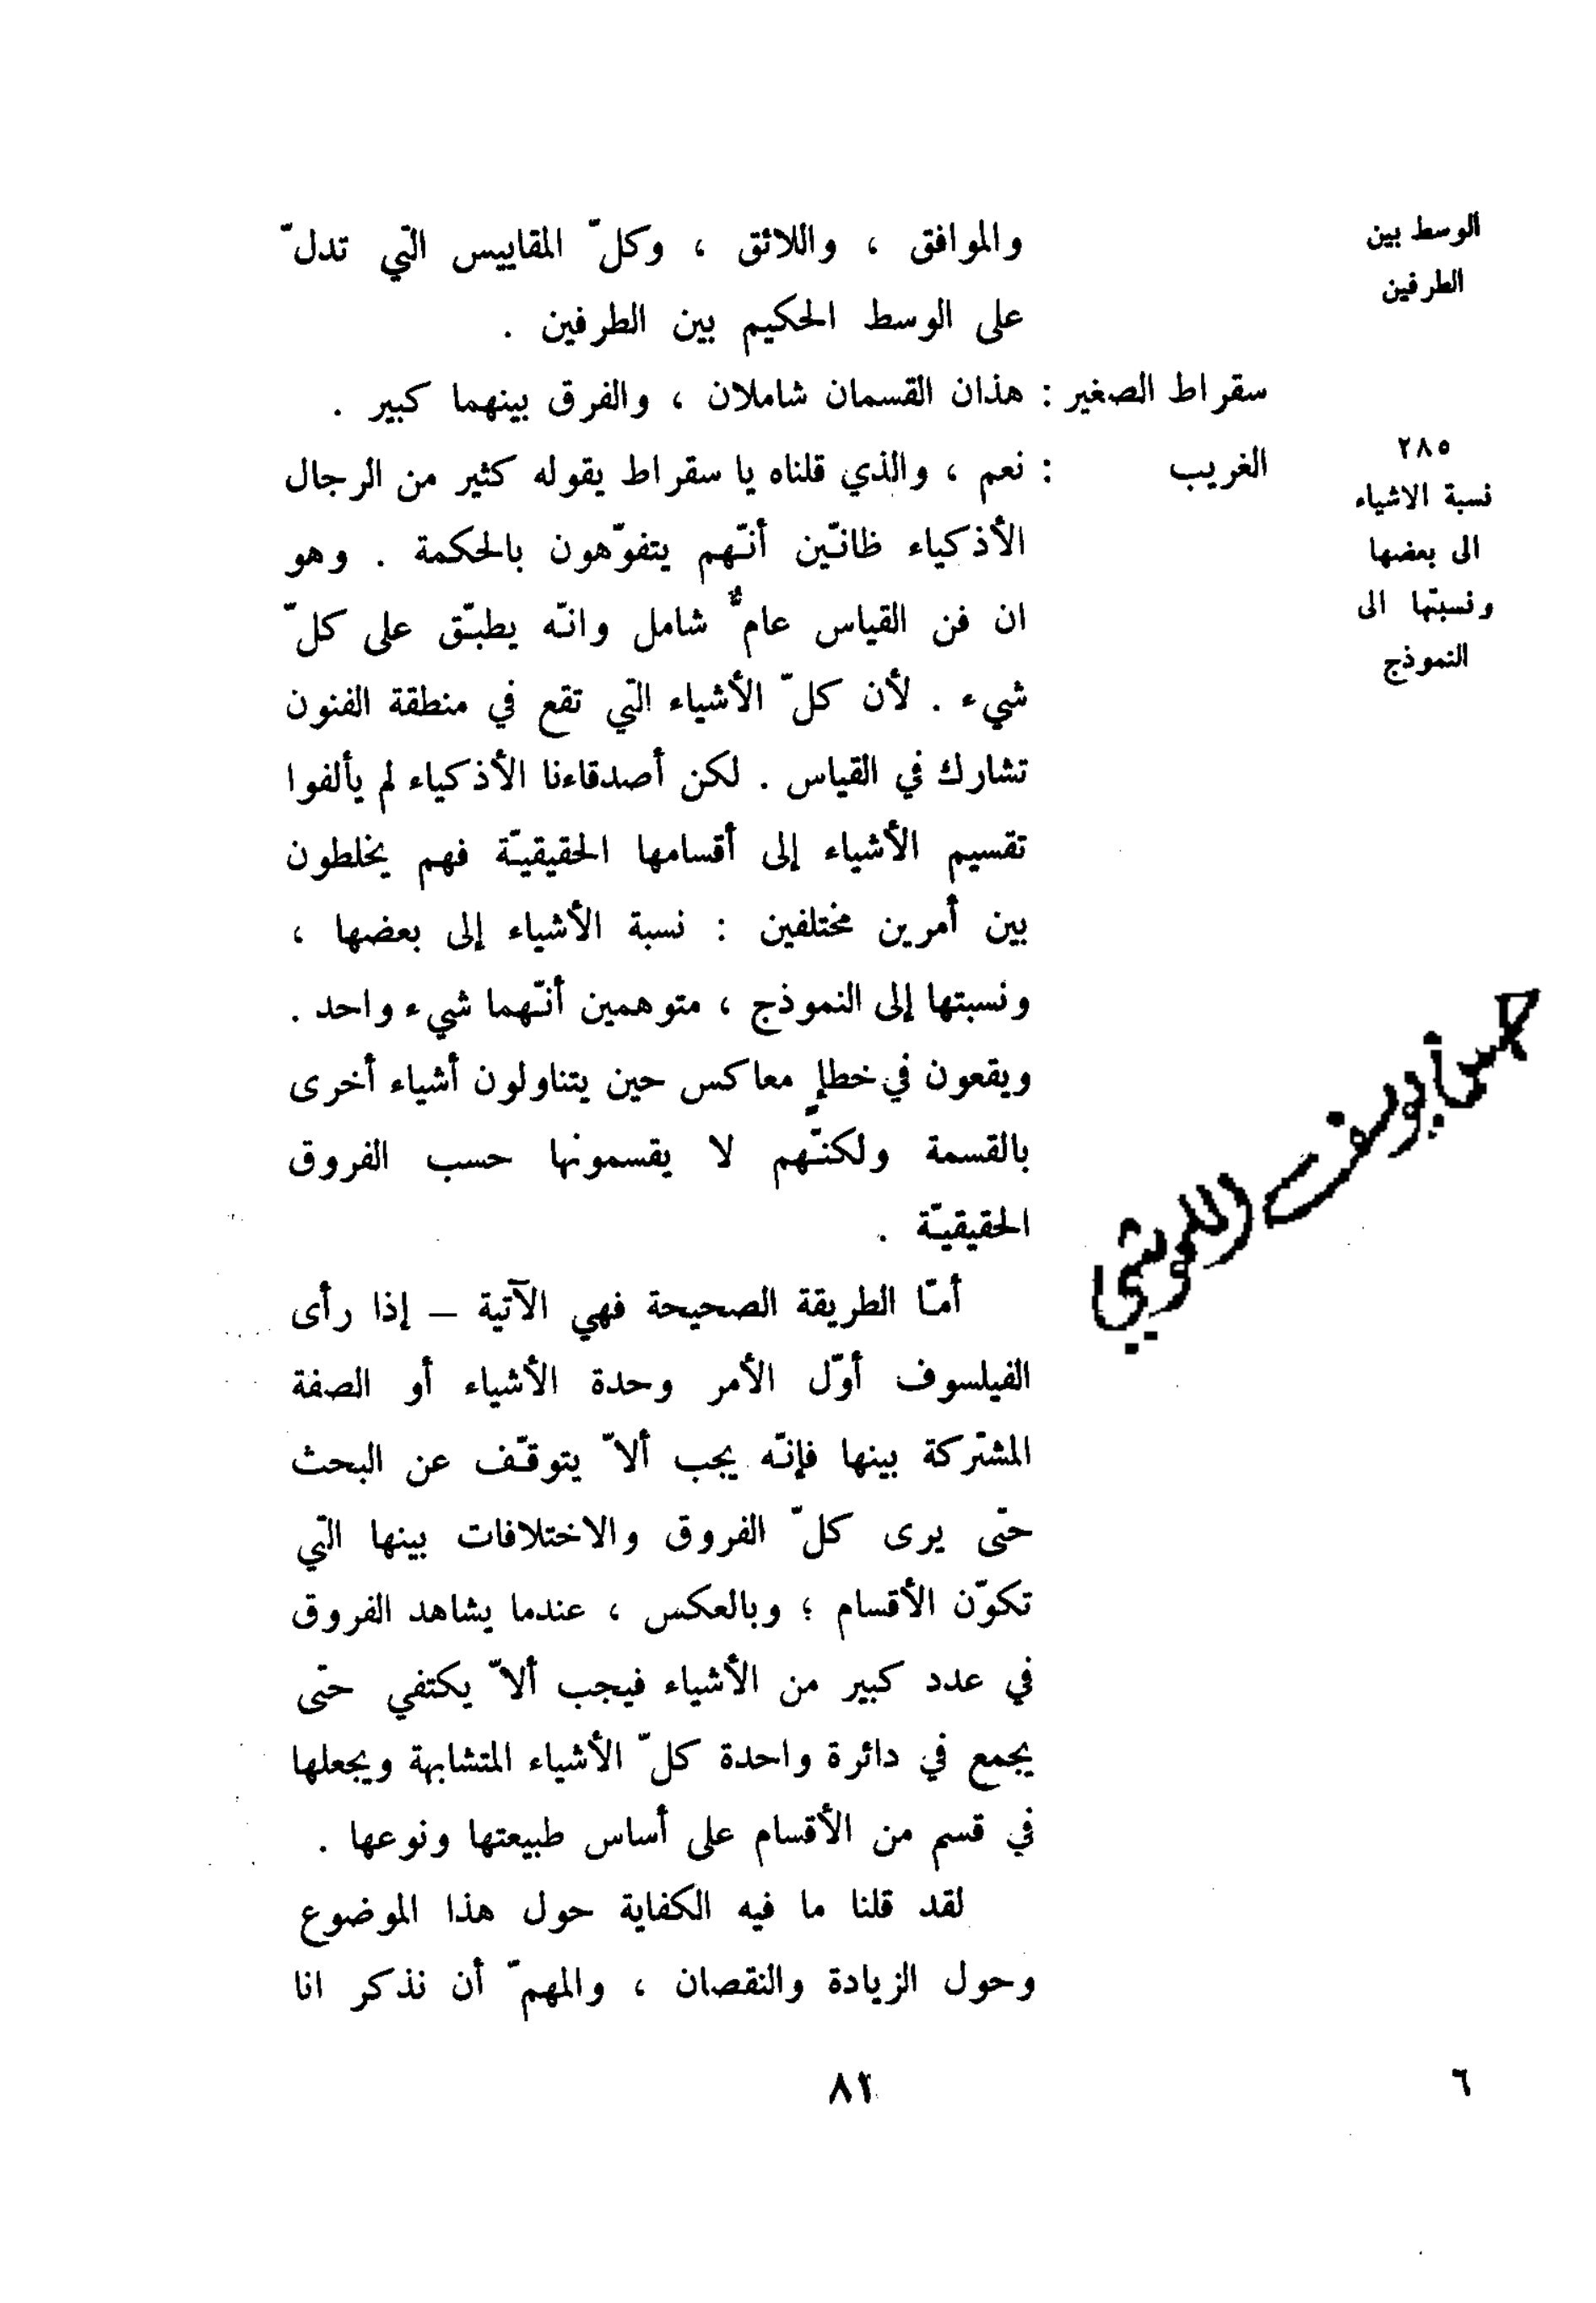 الوسط بين
الطرفين
والموافق ، واللائق ، وكلّ المقاييس التّي تدلّ
على الوسط الحكيم بين الطرفين .
سقراط الصغير : هذان القسمان شاملان ، والفرق بينهما كبير .
٢٨٥
نسبة الاشياء
الى بعضها
ونسبتها الى
النموذج
الغريب : نعم ، والذي قلناه يا سقراط يقوله كثير من الرجال
الأذكياء ظانّين أنّهم يتفوّهون بالحكمة . وهو
ان فن القياس عامٌّ شامل وانّه يطبّق على كلّ
شيء . لأن كلّ الأشياء التّي تقع في منطقة الفنون
تشارك في القياس . لكن أصدقاءنا الأذكياء لم يألفوا
تقسيم الأشياء إلى أقسامها الحقيقيّة فهم يخلطون
بين أمرين مختلفين : نسبة الأشياء إلى بعضها ،
ونسبتها إلى النموذج ، متوهمين أنّهما شيء واحد .
ويقعون في خطإٍ معاكس حين يتناولون أشياء أخرى
بالقسمة ولكنّهم لا يقسمونها حسب الفروق
الحقيقيّة .
أمّا الطريقة الصحيحة فهي الآتية – إذا رأى
الفيلسوف أوّل الأمر وحدة الأشياء أو الصفة
المشتركة بينها فإنّه يجب ألاّ يتوقّف عن البحث
حتّى يرى كلّ الفروق والاختلافات بينها التّي
تكوّن الأقسام ؛ وبالعكس ، عندما يشاهد الفروق
في عدد كبير من الأشياء فيجب ألاّ يكتفي حتّى
يجمع في دائرة واحدة كلّ الأشياء المتشابهة ويجعلها
في قسم من الأقسام على أساس طبيعتها ونوعها .
لقد قلنا ما فيه الكفاية حول هذا الموضوع
وحول الزيادة والنقصان ، والمهمّ أن نذكر انا
٦